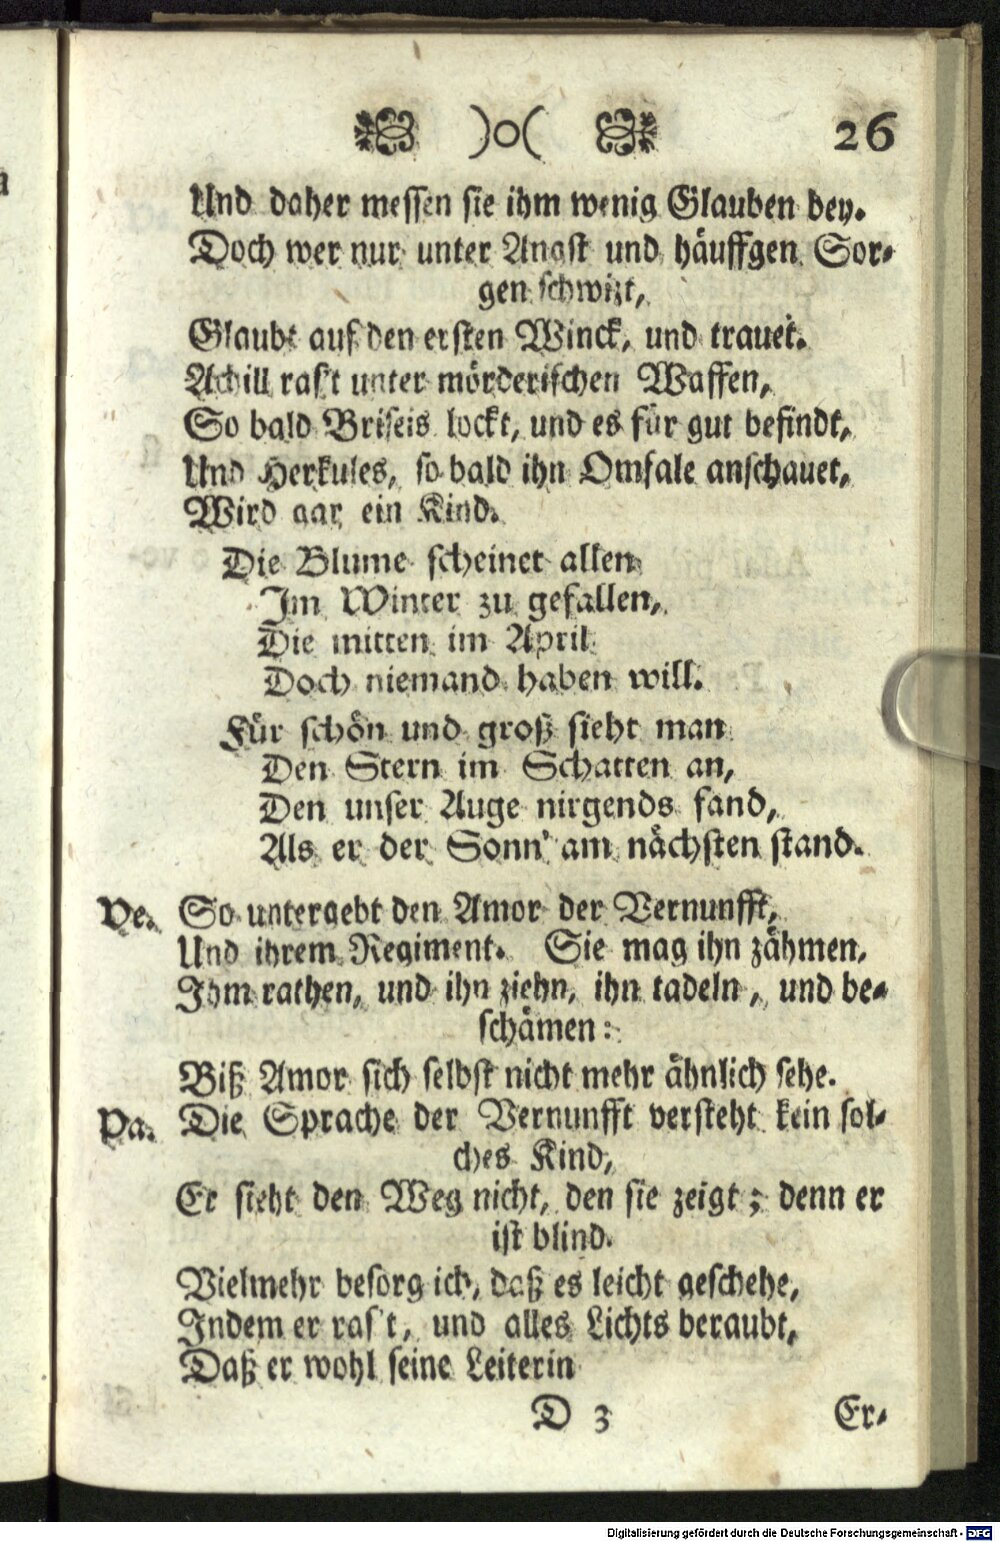 )o( 26
Und daher messen sie ihm wenig Glauben bey.
Doch wer nur unter Angst und häuffgen Sor-
gen schwizt,
Glaubt auf den ersten Winck, und trauet.
Achill ras't unter mörderischen Waffen,
So bald Briseis lockt, und es für gut befindt,
Und Herkules, so bald ihn Omfale anschauet,
Wird gar ein Kind.
Die Blume scheinet allen
Im Winter zu gefallen,
Die mitten im April
Doch niemand haben will.
Für schön und groß sieht man
Den Stern im Schatten an,
Den unser Auge nirgends fand,
Als er der Sonn' am nächsten stand.
Ve. So untergebt den Amor der Vernunfft,
Und ihrem Regiment. Sie mag ihn zähmen,
Ihm rathen, und ihn ziehn, ihn tadeln, und be-
schämen:
Biß Amor sich selbst nicht mehr ähnlich sehe.
Pa. Die Sprache der Vernunfft versteht kein sol-
ches Kind,
Er sieht den Weg nicht, den sie zeigt; denn er
ist blind.
Vielmehr besorg ich, daß es leicht geschehe,
Indem er ras't, und alles Lichts beraubt,
Daß er wohl seine Leiterin
D 3 Er-
Digitalisierung gefördert durch die Deutsche Forschungsgemeinschaft - DFG